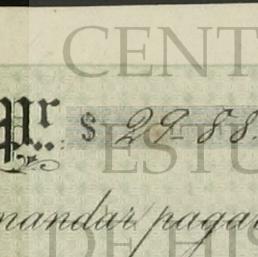 CENT
pr. $ 29-88.
ESTU
mandar pagar
DE HIS